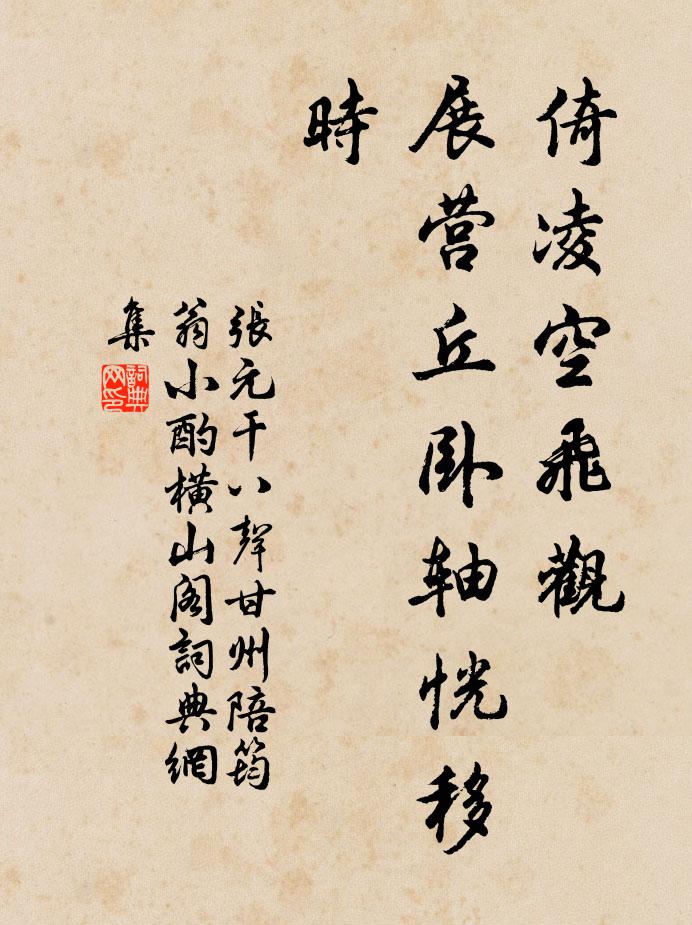 倚凌空飛觀
展营丘卧轴恍移
時
張元干八聲甘州陪筠
翁小酌横山阁詞典網
集
詞典
网印